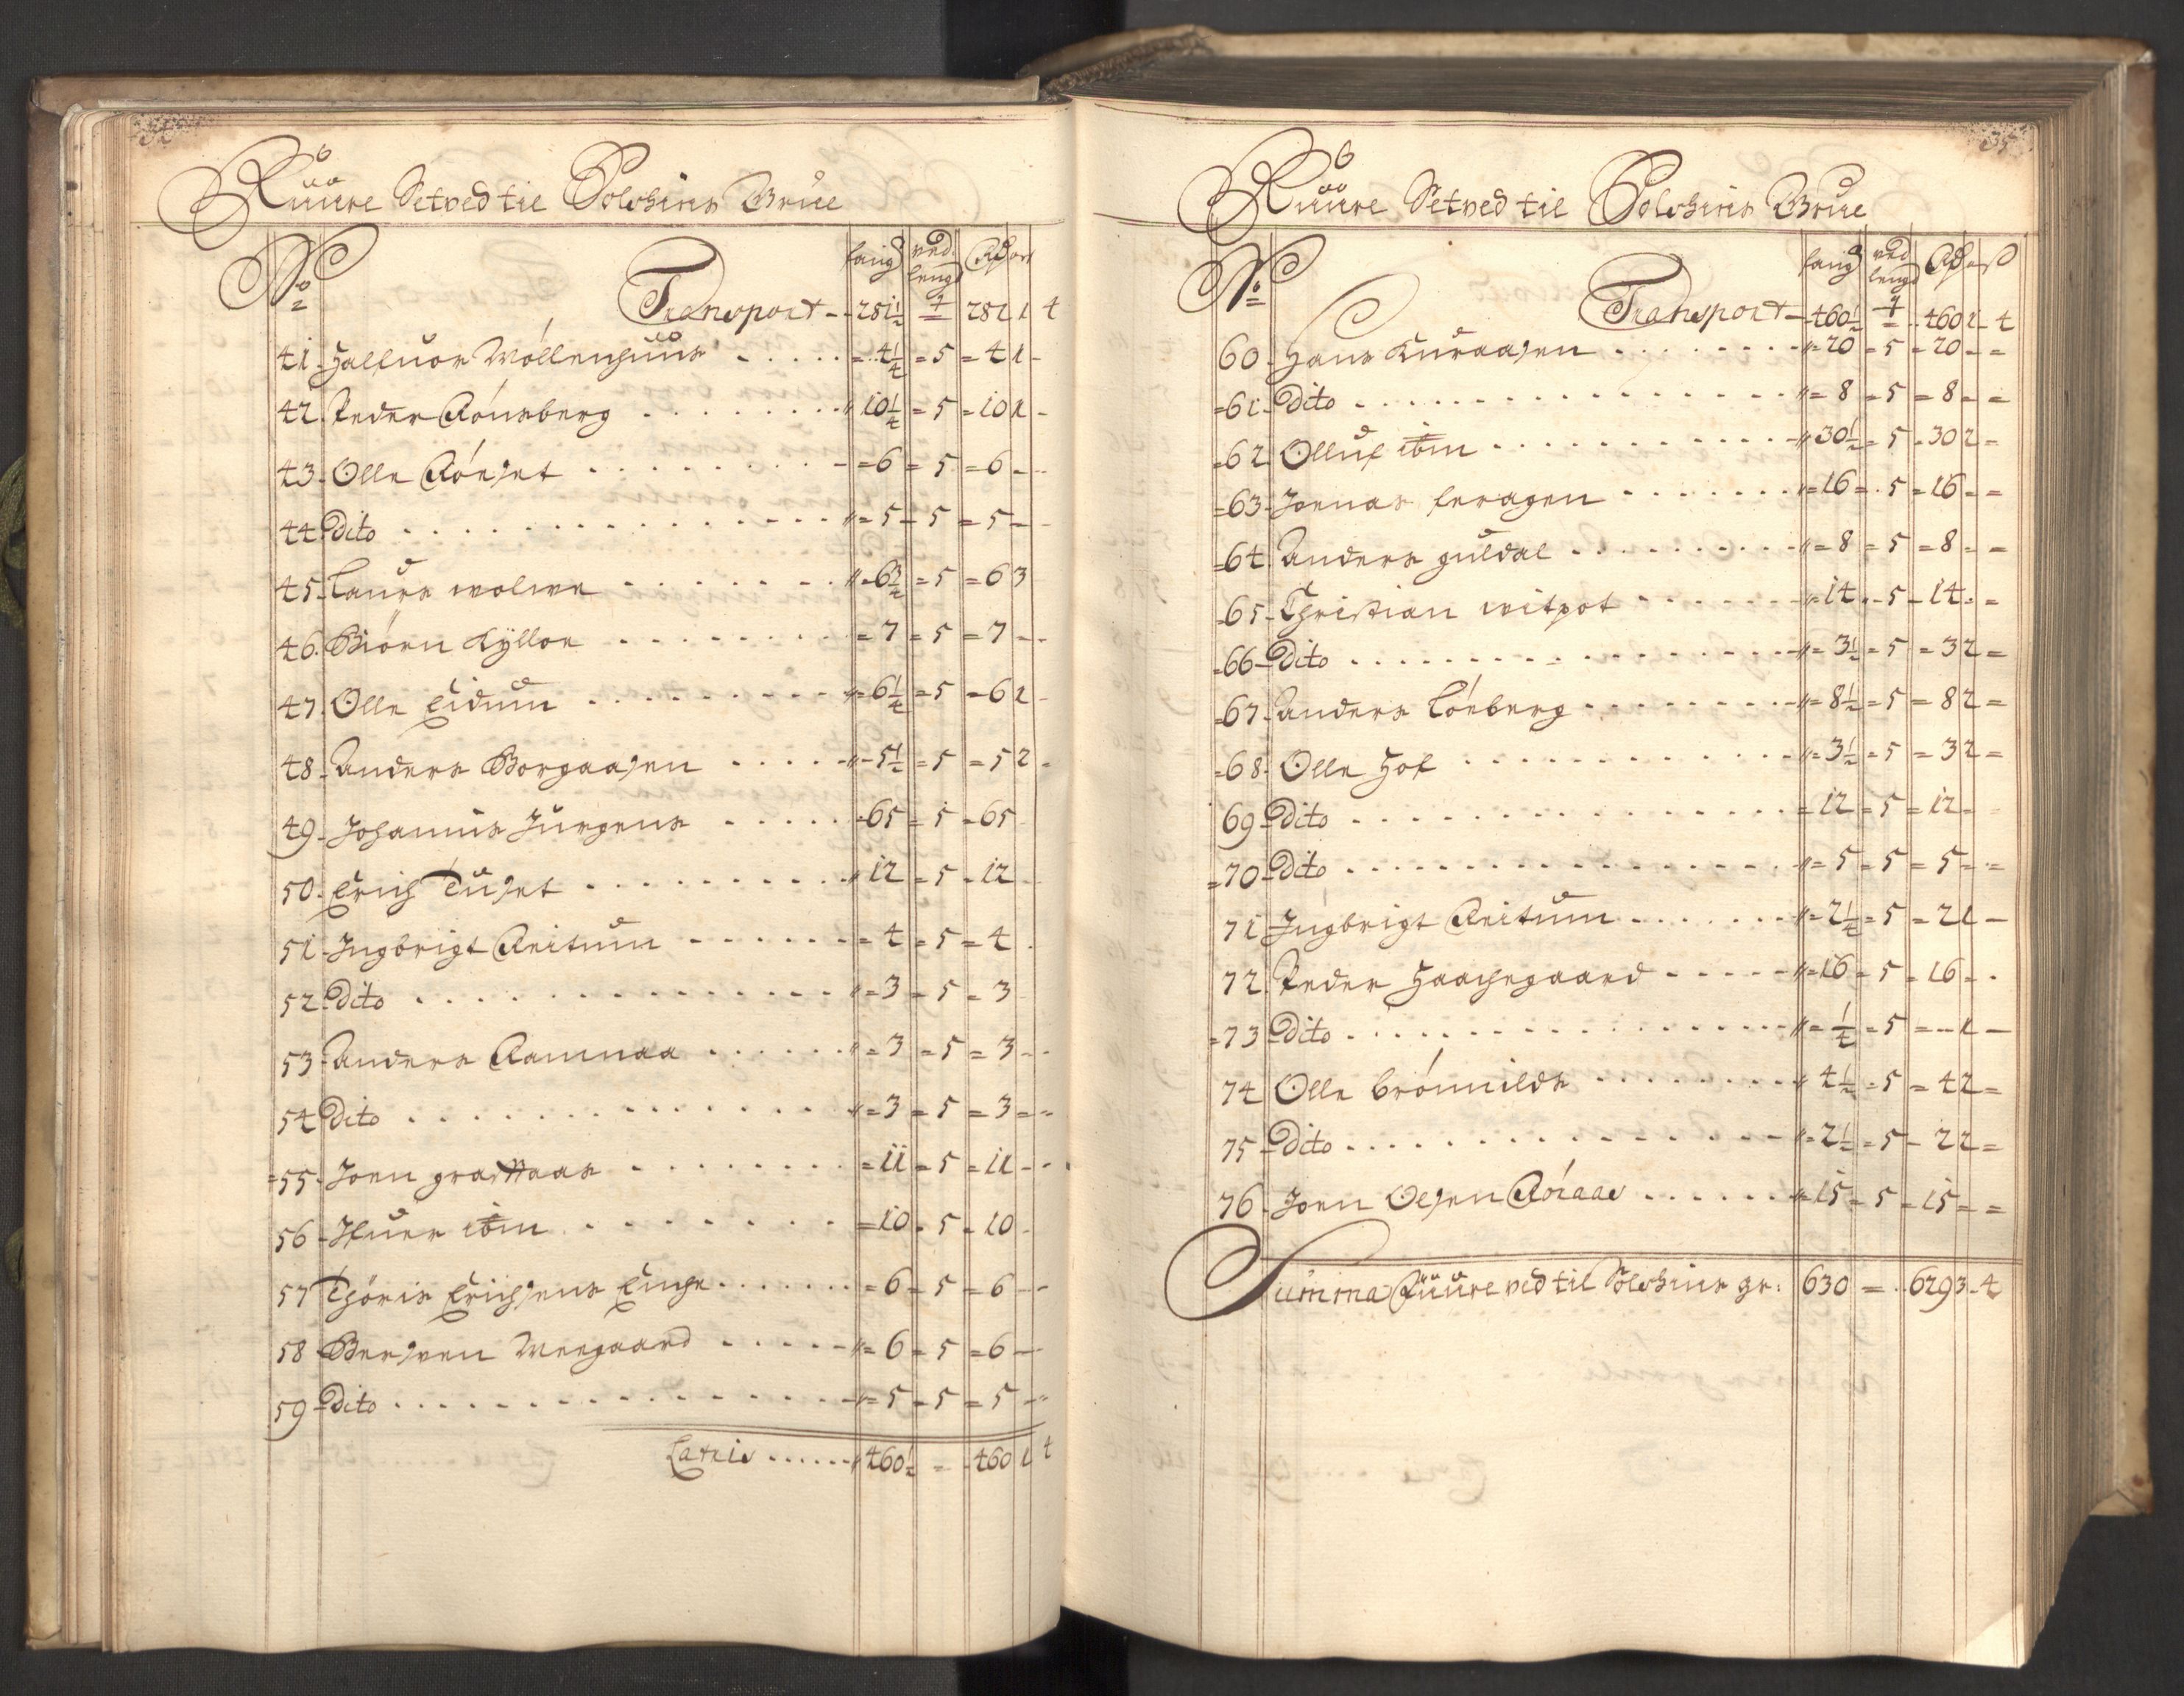 Ruure Setved til Solskins Grue
No
fang ved lengd Rd ort
Transport - - 281½ 4 281 1 4
41 - Halfuor Möllenhuus . . . . . = 4¼ = 5 = 4 1 -
42 - Peder Rönsberg . . . . . . . . " 10¼ = 5 = 10 1 -
43 - Olle Rönset . . . . . . . . . = 6 = 5 = 6 - -
44 Dito . . . . . . . . . . . . . " = 5 - 5 = 5 -
45 - Laurs wolwe . . . . . . . . " = 6¾ = 5 = 6 3
46 - Biörn Kÿlloe . . . . . . . . = 7 = 5 = 7 - -
47 - Olle Eidum . . . . . . . . " = 6¼ = 5 = 6 1 -
48 - Anders Borgaasen . . . . . " - 5½ = 5 = 5 2 -
49 - Johannis Jürgens . . . . . = 65 = 5 = 65
50 - Erich Tuset . . . . . . . . . " 12 = 5 = 12
51 - Ingbrigt Reitum - - - - - - = 4 = 5 = 4 .
52 - Dito . . . . . . . . . . . . . " = 3 = 5 = 3
53 - Anders Ramnaa . . . . . . " = 3 = 5 = 3 - -
54 Dito . . . . . . . . . . . . . " = 3 = 5 = 3 = =
= 55 - Joen graaas . . . . . . . . = 11 = 5 = 11 - -
56 - Ifuer ibm . . . . . . . . = 10 = 5 = 10 -
57 Thöris Erichsens Enche . . . . . . . = 6 = 5 = 6 - -
58 - Bersven Weegaard . . . . . " = 6 = 5 = 6 -
59 - Dito . . . . . . . . . . . . . " = 5 = 5 = 5 - -
Lateris . . . . . . " 460½ = = 460 1 4
35
Ruure Setved til Solskins Grue
No
fang ved lengd Rd ort ß
Transport - - 460½ 4 = 460 1 - 4
60 - Hans Kuraasen . . . . . . . " = 20 = 5 = 20 - =
= 61 - Dito . . . . . . . . . . . . . " = 8 = 5 = 8 = =
= 62 Olluf ibm . . . . . . . . . . " 30½ = 5 = 30 2 =
= 63 - Joenas feragen . . . . . . . " = 16 = 5 = 16 - =
= 64 - Anders guldal . . . . . . . . . " = 8 = 5 = 8 = =
= 65 - Christian witpot . . . . . . " = 14 - 5 - 14 - =
= 66 - Dito . . . . . . . . . . . . . " = 3½ = 5 = 3 2 =
= 67 - Anders Lönberg . . . . . . . . " = 8½ = 5 = 8 2 =
= 68 - Olle Hof . . . . . . . . . . . " = 3½ = 5 = 3 2 =
69 - Dito . . . . . . . . . . . . . = 12 = 5 = 12 =
= 70 - Dito . . . . . . . . . . . . . " = 5 = 5 = 5 = =
71 Ingbrigt Reitum . . . . . . . " = 2¼ = 5 = 2 1 -
72 - Peder Haachegaard - - - - - " = 16 = 5 = 16 = -
= 73 Dito . . . . . . . . . . . . . " = ¼ = 5 = - 1 -
74 Olle brönnilds . . . . . . . . " 4½ = 5 = 4 2 =
75 - Dito . . . . . . . . . . . . . " = 2½ = 5 - 2 2 =
76 - Joen Olsen Röraas . . . . . . " = 15 = 5 = 15 = =
Summa Ruure ved til Solskins gr: 630 = = 629 3 - 4